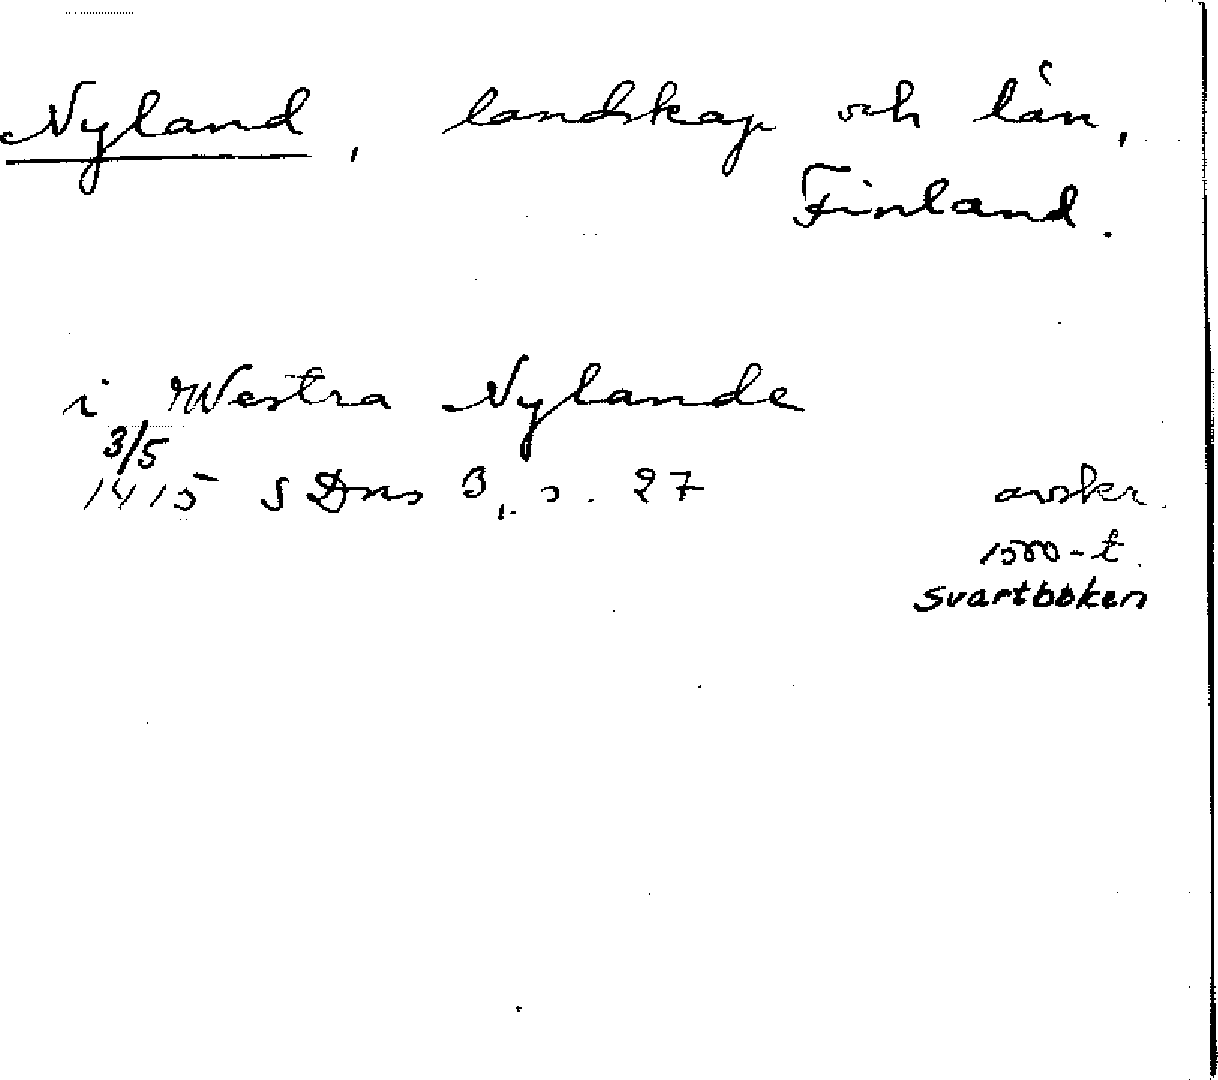 Nyland, landskap och län,
Finland.
i Westra Nylande
3/5
1415 SDns 3, s. 27 avskr.
1500-t.
svartboken